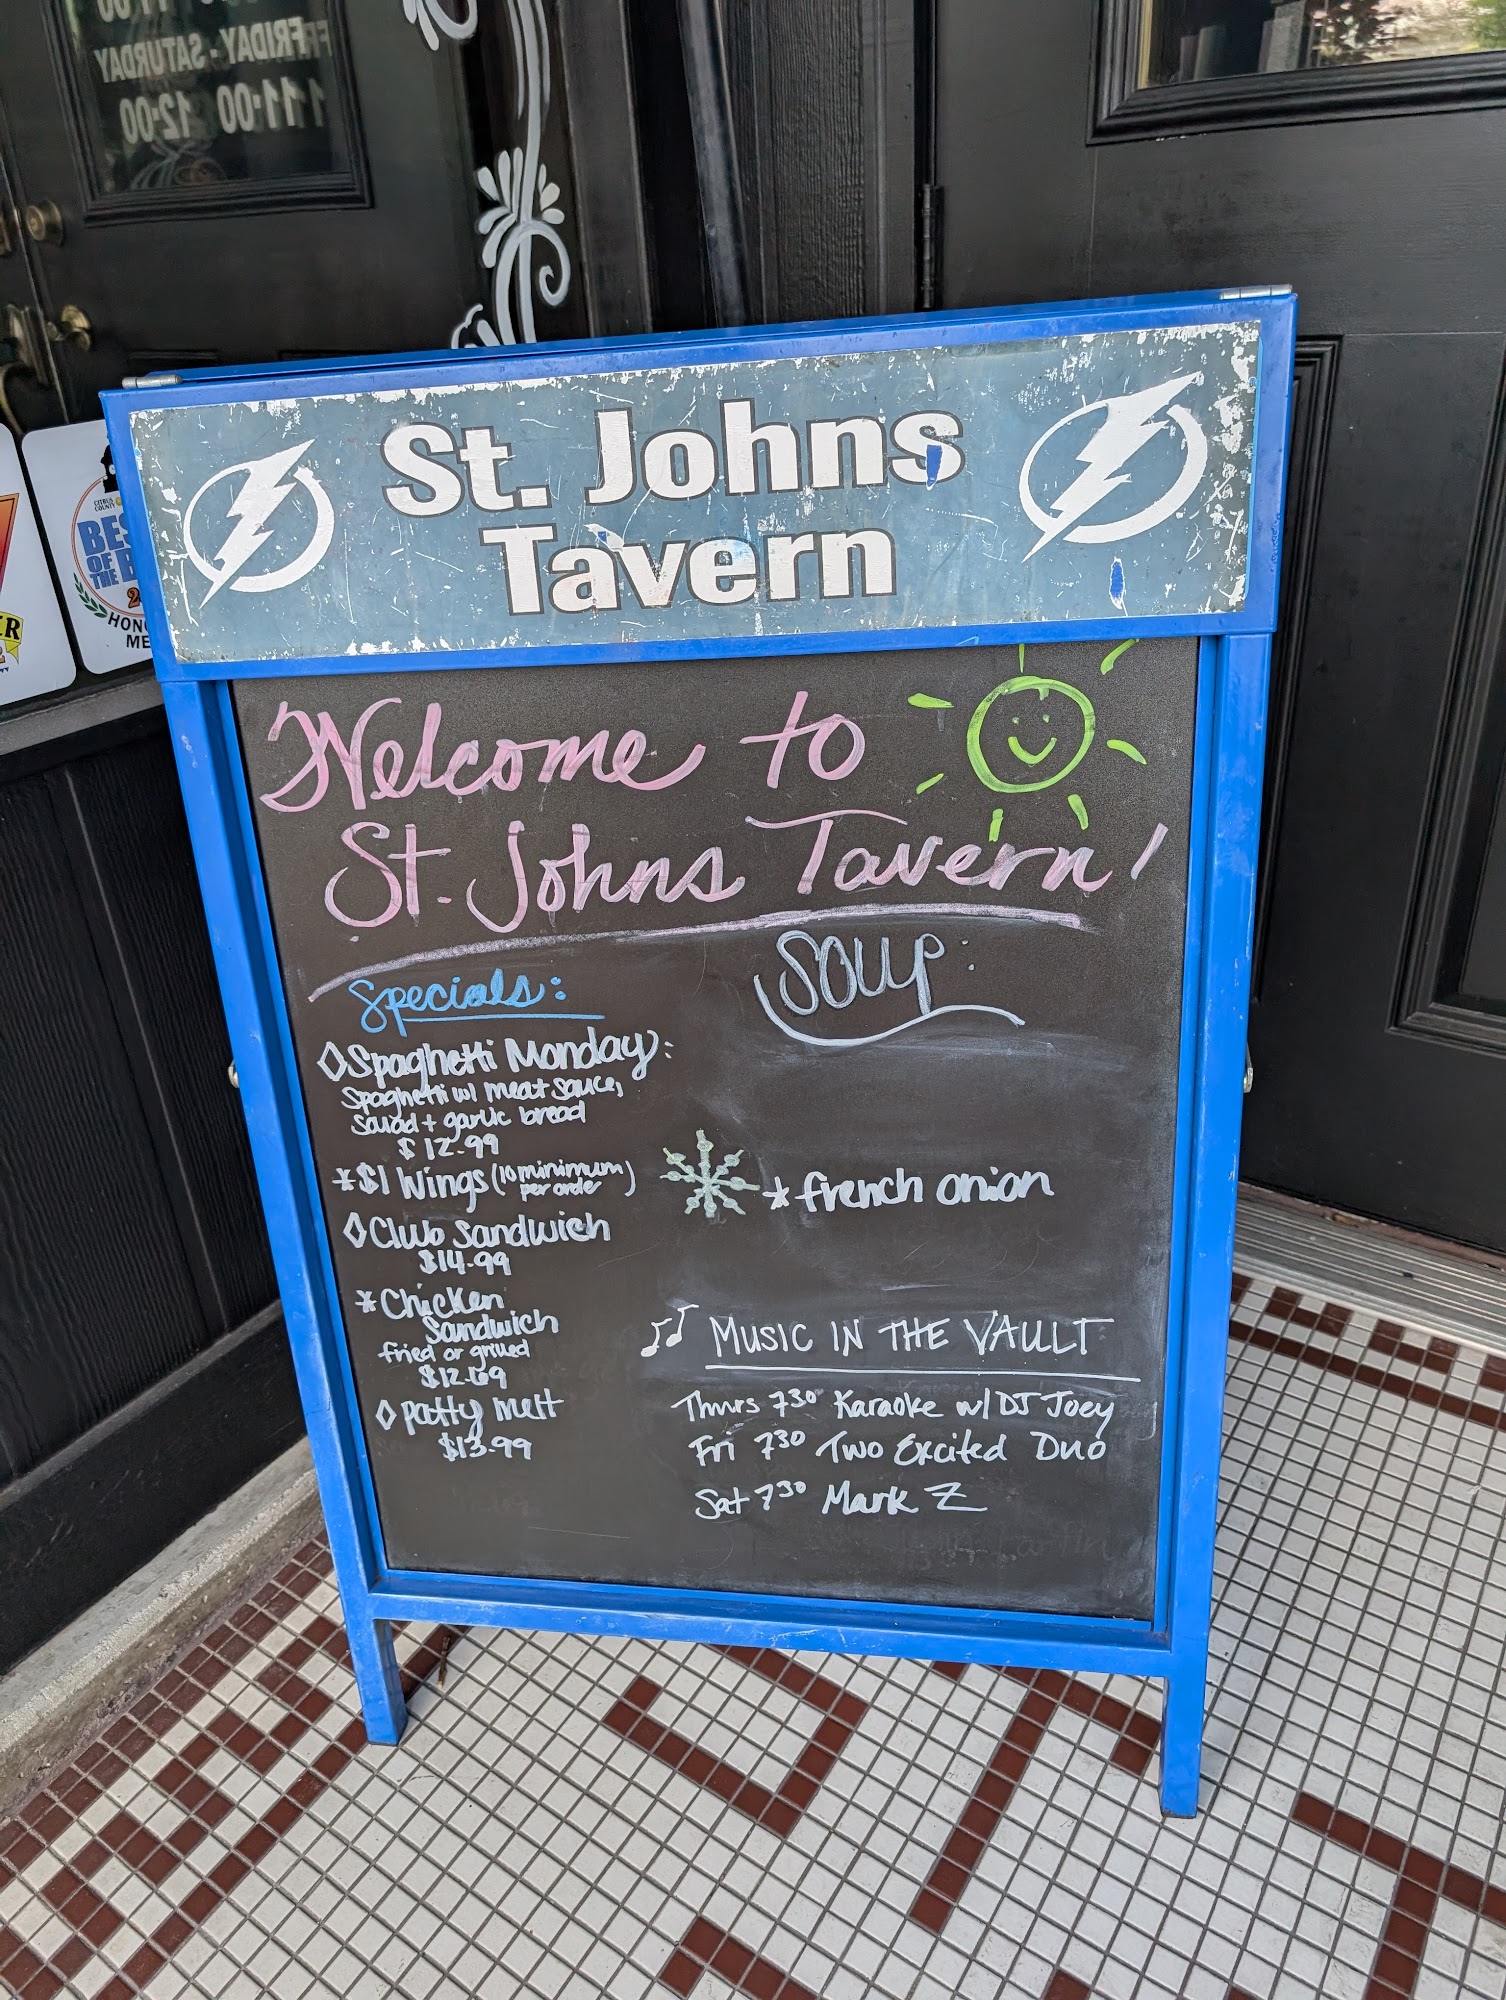 FRIDAY - SATURDAY
11:00 12:00
CITRUS
COUNTY
BES
OF
THE B
HONO
ME
St. Johns
Tavern
Welcome to
St. Johns Tavern!
Specials:
Spaghetti Monday:
Spaghetti w/ meat sauce,
salad + garlic bread
$12.99
*$1 Wings (10 minimum
per order)
Club Sandwich
$14.99
*Chicken
Sandwich
fried or grilled
patty melt
$13.99
Soup:
*french onion
MUSIC IN THE VAULT
Thurs 7:30 Karaoke w/ DJ Joey
Fri 7:30 Two Excited Duo
Sat 7:30 Mark Z